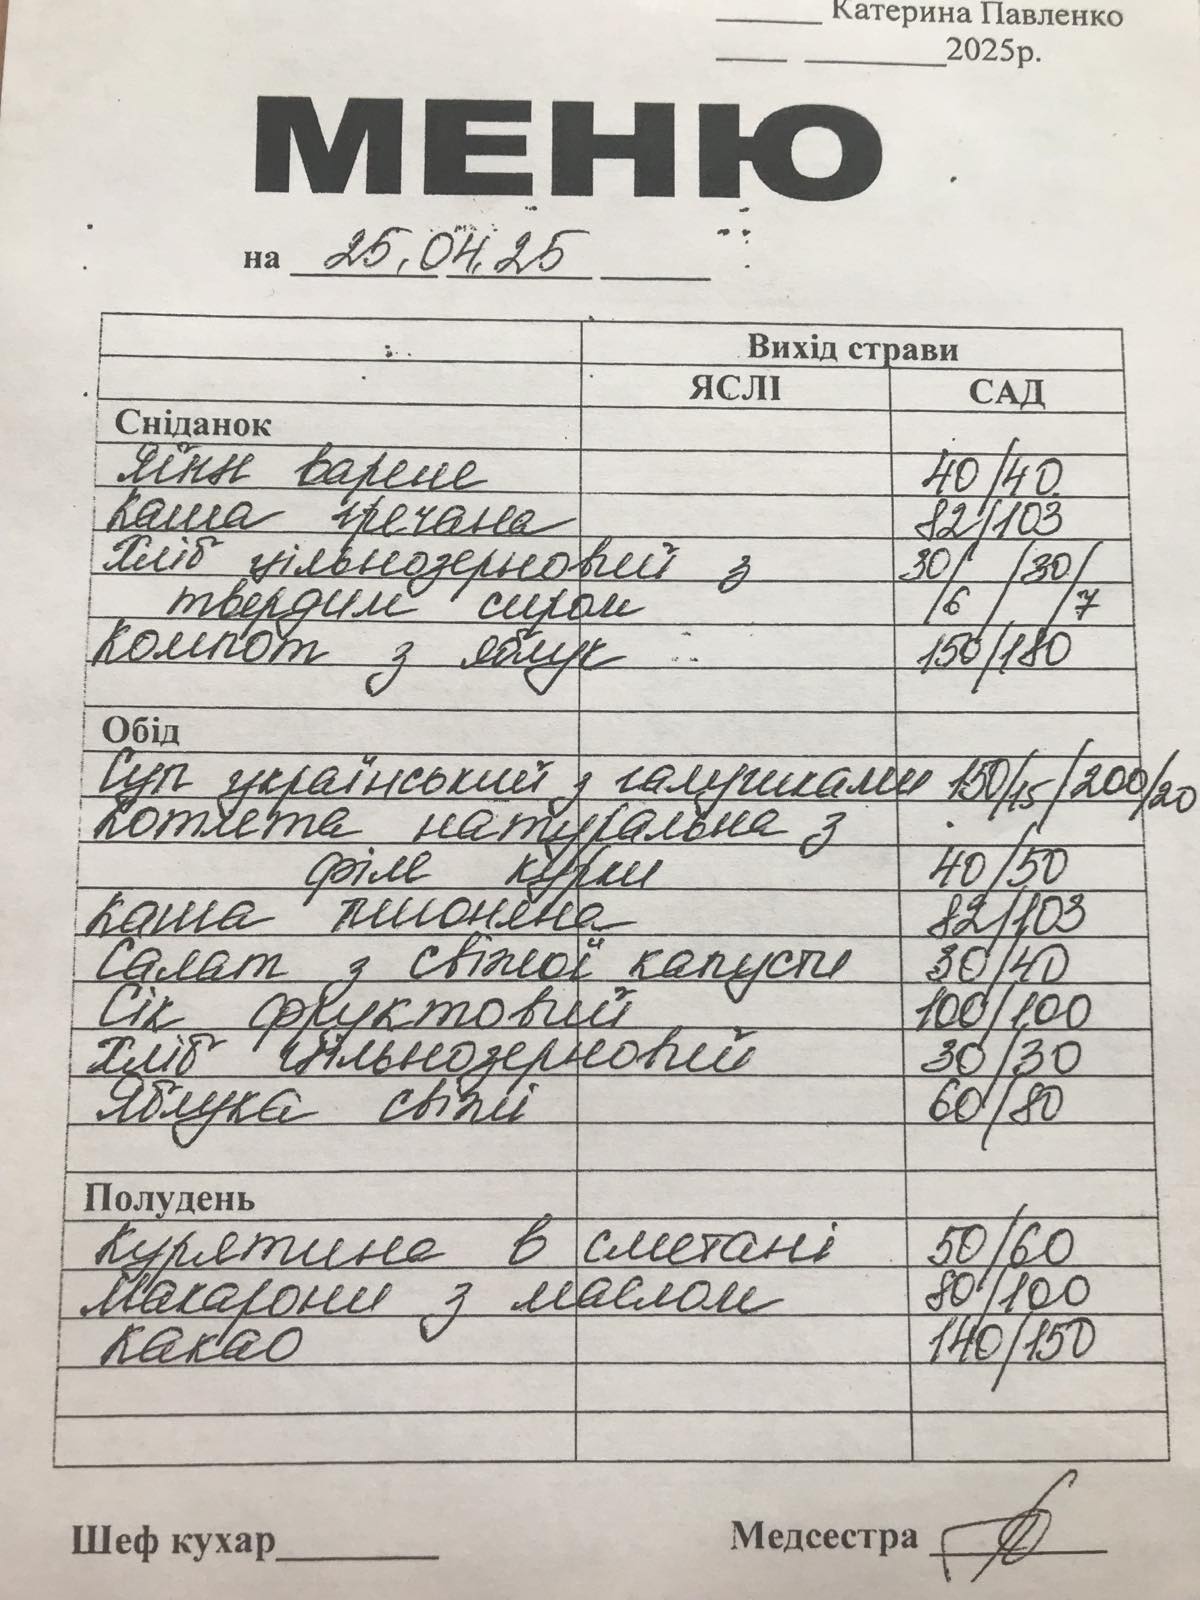 Катерина Павленко
2025р.
МЕНЮ
на 25.04.25
Вихід страви
ЯСЛІ САД
Сніданок
Яйце варене 40/40
Каша гречана 82/103
Хліб цільнозерновий з 30/ /30/
твердим сиром /6 /7
Компот з яблук 150/180
Обід
Суп український з галушками 150/15/200/20
Котлета натуральна з
філе курки 40/50
Каша пшоняна 82/103
Салат з свіжої капусти 30/40
Сік фруктовий 100/100
Хліб цільнозерновий 30/30
Яблука свіжі 60/80
Полудень
Курятина в сметані 50/60
Макарони з маслом 80/100
Какао 140/150
Шеф кухар Медсестра